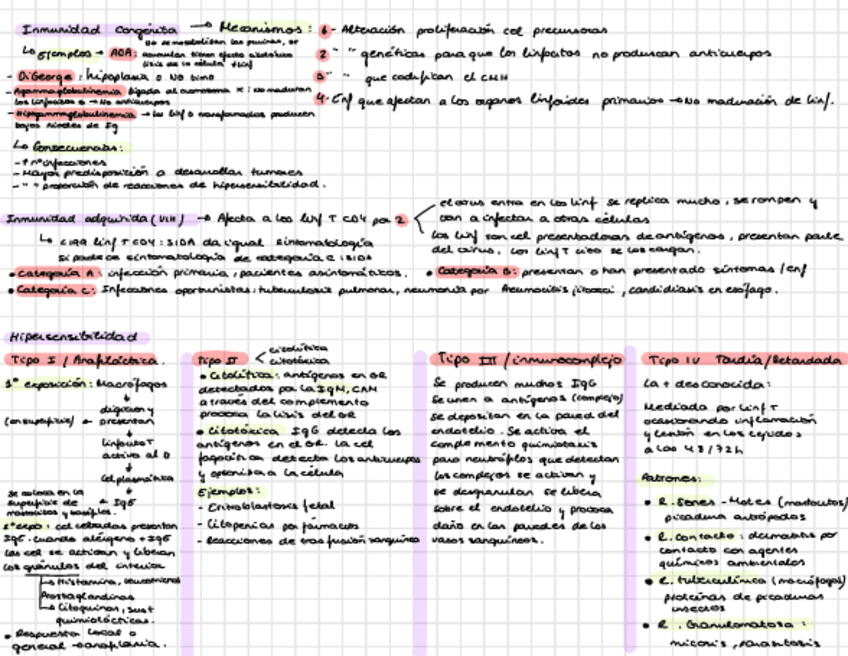 Inmunidad Congénita → Mecanismos: 1- Alteración proliferación cel precursoras
↳ Ejemplos → ADA: No se metabolizan las purinas, se
acumulan tienen efecto citotóxico
lisis de la célula ↓linf
2 " " genéticas para que los linfocitos no produzcan anticuerpos
- DiGeorge: hipoplasia o No timo
3 " " que codifican el CMH
- Agammaglobulinemia ligada al cromosoma X: No maduran
los linfocitos B → No anticuerpos
4- Enf que afectan a los organos linfoides primarios → No maduración de linf.
- Hipogammaglobulinemia → los linf B transformados producen
bajos niveles de Ig
↳ Consecuencias:
- ↑ nº infecciones
- Mayor predisposición a desarrollar tumores
- " " proporción de reacciones de hipersensibilidad.
Inmunidad adquirida (VIH) → Afecta a los linf T CD4 por 2
el virus entra en los linf se replica mucho, se rompen y
van a infectar a otras células
los linf son cel presentadoras de antígenos, presentan parte
del virus, los linf T se los cargan.
↳ linf T CD4: SIDA da igual sintomatología
Si padece sintomatología de categoría C: SIDA
• Categoría A: infección primaria, pacientes asintomáticos.
• Categoría B: presentan o han presentado síntomas / enf
• Categoría C: Infecciones oportunistas: tuberculosis pulmonar, neumonía por Pneumocitis jirovecii, candidiasis en esófago.
Hipersensibilidad
Tipo I / Anafiláctica.
1º exposición: Macrófagos
↓
digieren y
(en superficie) ← presentan
↓
linfocito T
activa al B
↓
Cel plasmática
↓
Se coloca en la
superficie de ← IgE
mastocitos y basófilos.
2º expo: cel cebadas presentan
IgE. cuando alérgeno + IgE
las cel se activan y liberan
los gránulos del interior
↳ Histamina,
Prostaglandinas
↳ Citoquinas, sust
quimiotácticas.
• Respuesta local o
general → anafilaxia.
Tipo II < citolítica
citotóxica
• Citolítica: antígenos en GR
detectados por la IgM, CAM
a través del complemento
provoca la lisis del GR
• Citotóxica IgG detecta los
antígenos en el GR. La cel
fagocítica detecta los anticuerpos
y opsoniza a la célula
Ejemplos:
- Eritroblastosis fetal
- Citopenias por fármacos
- Reacciones de transfusión sanguínea
Tipo III / inmunocomplejo
Se producen muchos IgG
Se unen a antígenos (complejo)
se depositan en la pared del
endotelio. Se activa el
complemento quimiotaxis
para neutrófilos que detectan
los complejos se activan y
se desgranulan se libera
sobre el endotelio y provoca
daño en las paredes de los
vasos sanguíneos.
Tipo IV Tardía/Retardada
La + desconocida:
Mediada por linf T
ocasionando inflamación
y lesión en los tejidos
a las 48/72h
Patrones:
• R. Jones - Motes (mastocitos)
picadura artrópodos
• R. contacto: dermatitis por
contacto con agentes
químicos ambientales
• R. tuberculínica (macrófagos)
proteínas de picaduras
insectos
• R. Granulomatosa:
micosis, parasitosis